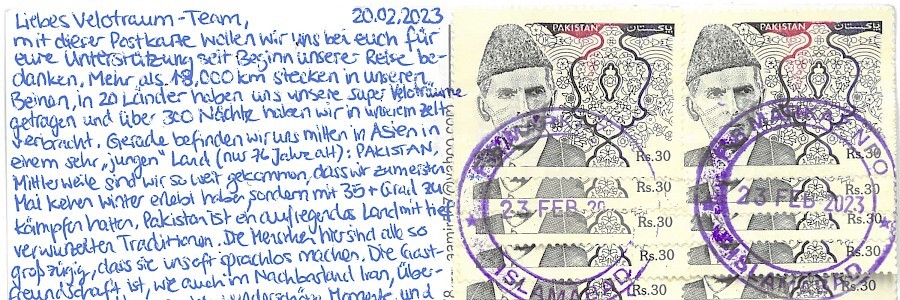 Liebes Velotraum-Team, 20.02.2023
mit dieser Postkarte wollen wir uns bei euch für
eure Unterstützung seit Beginn unserer Reise be-
danken. Mehr als 18.000 km stecken in unseren
Beinen, in 20 Länder haben uns unsere super Velotraüme
getragen und über 300 Nächte haben wir in unserem Zelt
verbracht. Gerade befinden wir uns mitten in Asien in
einem sehr „jungen" Land (nur 76 Jahre alt): PAKISTAN.
Mittlerweile sind wir so weit gekommen, dass wir zum ersten
Mal keinen Winter erlebt haben, sondern mit 35+ Grad zu
kämpfen hatten. Pakistan ist ein aufregendes Land mit tief
verwurzelten Traditionen. Die Menschen hier sind alle so
großzügig, dass sie uns oft sprachlos machen. Die Gast-
freundschaft ist, wie auch im Nachbarland Iran, über-
wunderschöne Momente und
PAKISTAN پاکستان
Rs.30
Rs.30
Rs.30
Rs.30
PAKISTAN پاکستان
Rs.30
Rs.30
Rs.30
Rs.30
23 FEB 20
ISLAMABAD
23 FEB 2023